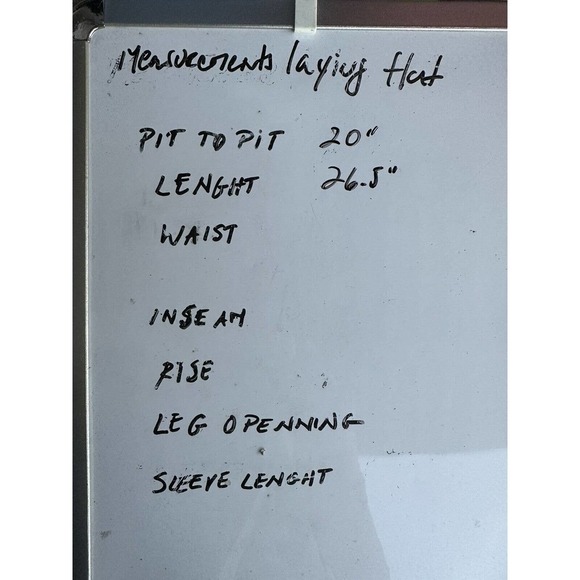 Measurements laying flat
PIT TO PIT 20"
LENGHT 26.5"
WAIST
INSEAM
RISE
LEG OPENNING
SLEEVE LENGHT